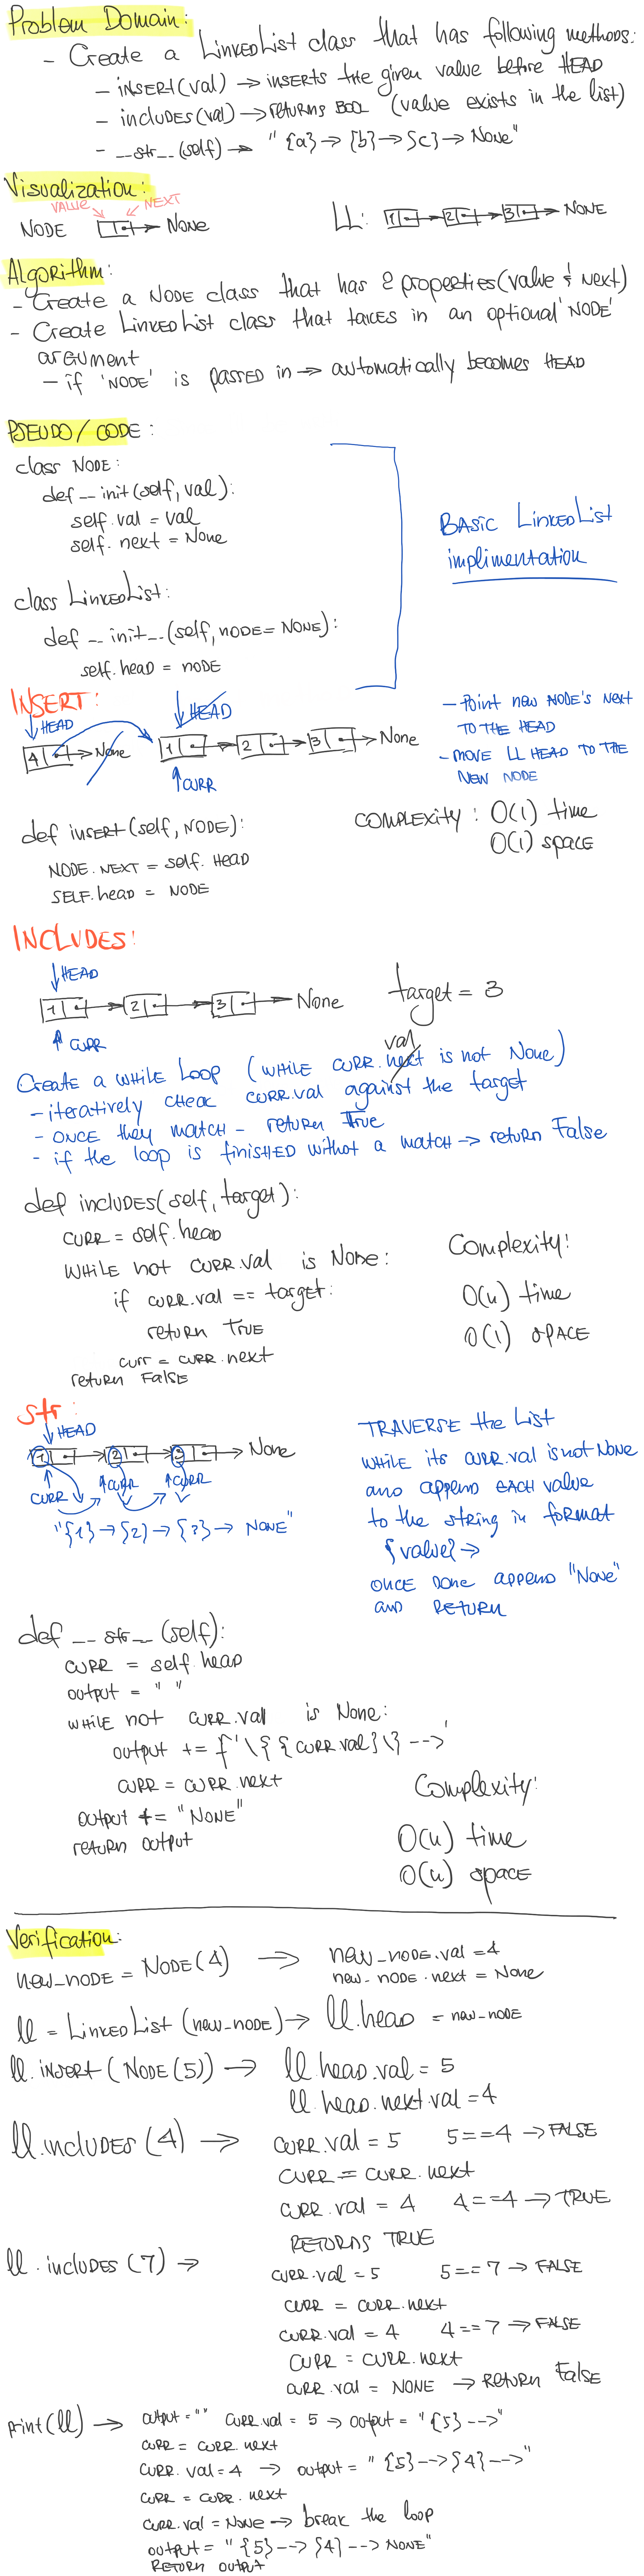 Problem Domain:
- Create a LinkedList class that has following methods:
- insert(val) → inserts the given value before HEAD
- includes(val) → returns BOOL (value exists in the list)
- __str__(self) → "{a} → {b} → {c} → None"
Visualization:
VALUE NEXT
NODE → None
LL: 1 → 2 → 3 → NONE
Algorithm:
- Create a NODE class that has 2 properties (value & next)
- Create LinkedList class that takes in an optional 'NODE'
argument
- if 'NODE' is passed in → automatically becomes HEAD
PSEUDO/CODE:
class NODE:
def __init(self, val):
self.val = val
self.next = None
class LinkedList:
def __init__(self, node=NONE):
self.head = node
BASIC LinkedList
implimentation
INSERT:
HEAD HEAD
4 → None 1 → 2 → 3 → None
CURR
- Point new NODE's next
TO THE HEAD
- MOVE LL HEAD TO THE
NEW NODE
def insert(self, NODE):
NODE.NEXT = self.HEAD
SELF.head = NODE
COMPLEXITY: O(1) time
O(1) space
INCLUDES:
HEAD
1 → 2 → 3 → None
CURR
target = 3
val
Create a while loop (WHILE CURR.next is not None)
- iteratively check CURR.val against the target
- ONCE they match - return True
- if the loop is finished without a match → return False
def includes(self, target):
CURR = self.head
WHILE not CURR.val is None:
if CURR.val == target:
return TRUE
curr = CURR.next
return False
Complexity:
O(n) time
O(1) SPACE
str:
HEAD
1 → 2 → 3 → None
CURR CURR CURR
"{1} → {2} → {3} → NONE"
TRAVERSE the List
WHILE its CURR.val is not NONE
and append EACH value
to the string in format
{value} →
ONCE Done append "None"
and RETURN
def __str__(self):
CURR = self.head
output = " "
WHILE not CURR.val is None:
output += f'\{ {CURR.val} \} -->'
CURR = CURR.next
output += "NONE"
return output
Complexity:
O(n) time
O(n) space
Verification:
new_node = NODE(4) → new_node.val = 4
new_node.next = None
ll = LinkedList(new_node) → ll.head = new_node
ll.insert(Node(5)) → ll.head.val = 5
ll.head.next.val = 4
ll.includes(4) → CURR.val = 5 5==4 → FALSE
CURR = CURR.next
CURR.val = 4 4==4 → TRUE
RETURNS TRUE
ll.includes(7) → CURR.val = 5 5==7 → FALSE
CURR = CURR.next
CURR.val = 4 4==7 → FALSE
CURR = CURR.next
CURR.val = NONE → Return False
print(ll) → output = "" CURR.val = 5 → output = "{5} -->"
CURR = CURR.next
CURR.val = 4 → output = "{5} --> {4} -->"
CURR = CURR.next
CURR.val = None → break the loop
output = "{5} --> {4} --> NONE"
RETURN output